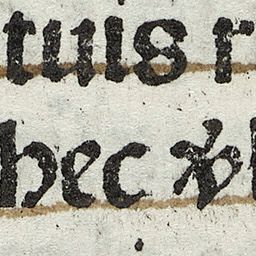 tuis r
hec